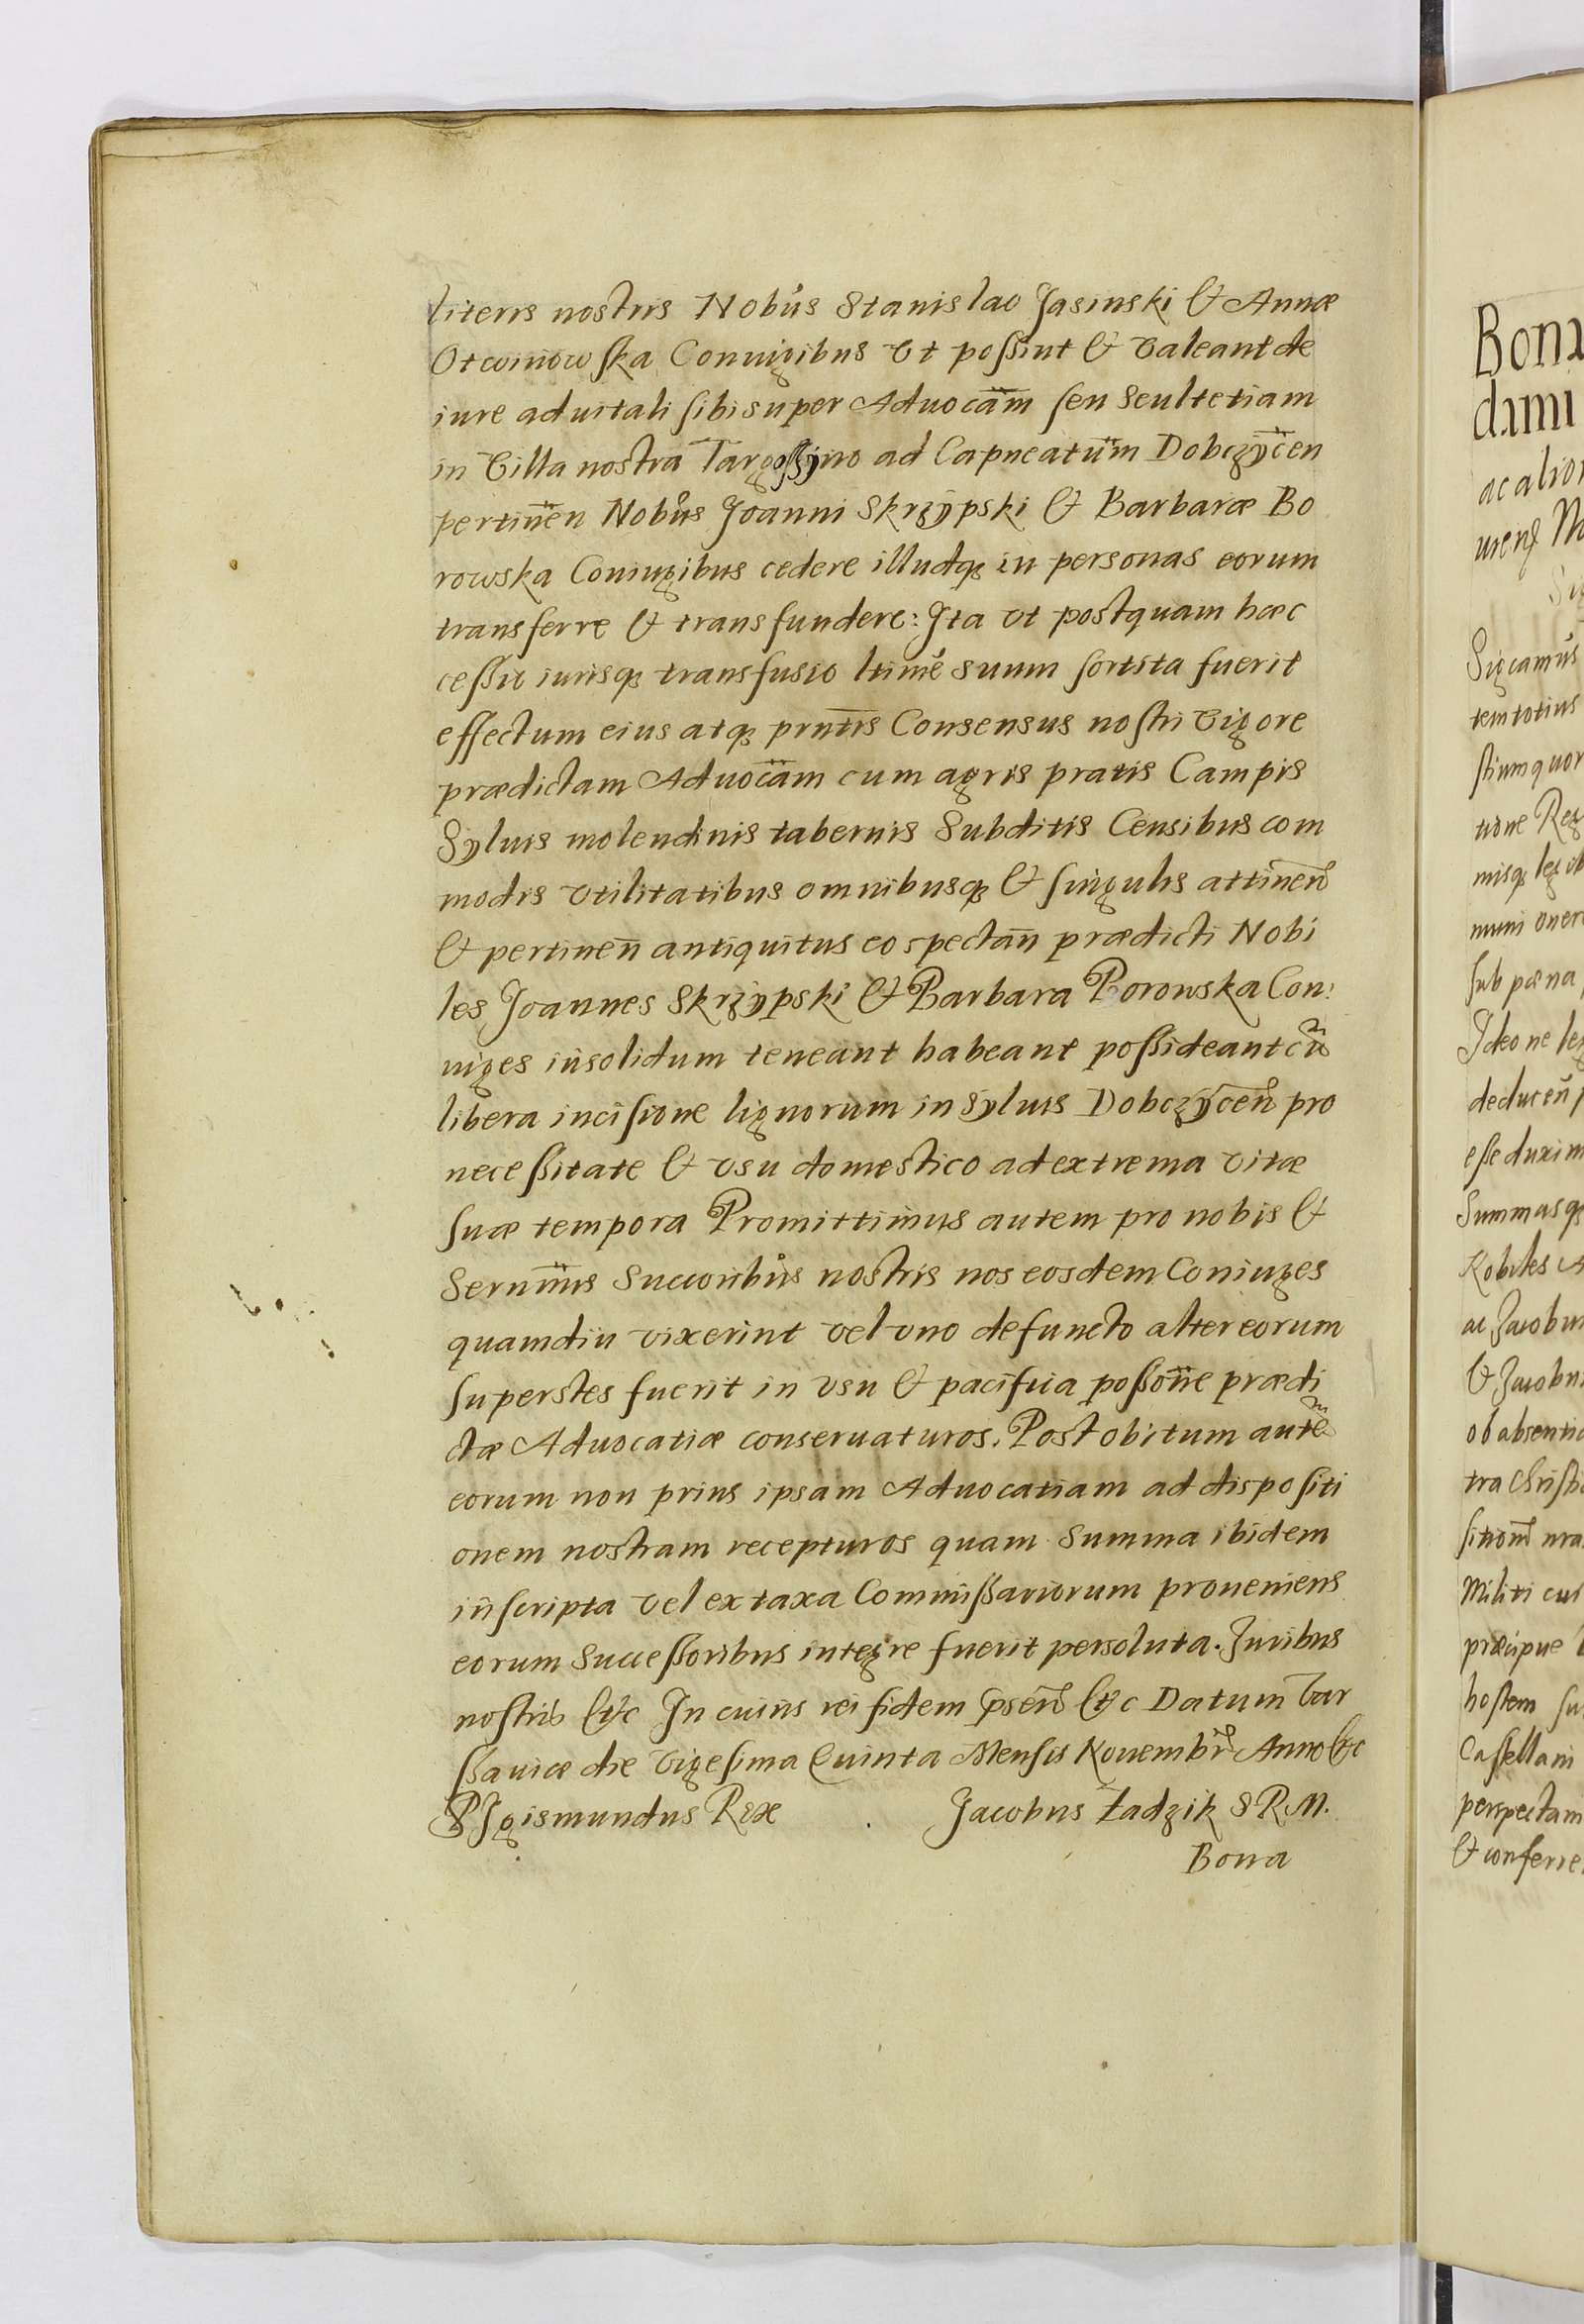 literis nostris Nobus Stanislao Jasinski & Annæ
Otwinowska Coniugibus Vt possint & Valeant de
iure aduitali sibi super Aduocam seu Scultetiam
in Villa nostra Targossyno ad Capneatum Dobczycen
pertinen Nobus Joanni Skrzypski & Barbaræ Bo
rowska Coniugibus cedere illudq in personas eorum
transferre & transfundere: Ita vt postquam hæc
cessio iurisq transfusio ltime suum sortita fuerit
effectum eius atq prntis Consensus nostri Vigore
prædictam Aduocam cum agris pratis Campis
Syluis molendinis tabernis Subditis Censibus com
modis Vtilitatibus omnibusq & singulis attinen
& pertinen antiquitus eo spectan prædicti Nobi
les Joannes Skrzypski & Barbara Borowska Con:
iuges insolidum teneant habeant possideant cu
libera incisione lignorum in Syluis Dobczycen pro
necessitate & vsu domestico ad extrema vitæ
suæ tempora Promittimus autem pro nobis &
Sernmis Succoribus nostris nos eosdem Coniuges
quamdiu vixerint vel vno defuncto alter eorum
superstes fuerit in vsu & pacifica possone prædi
ctæ Aduocatiæ conseruaturos. Post obitum aute
eorum non prius ipsam Aduocatiam ad dispositi
onem nostram recepturos quam Summa ibidem
inscripta vel ex taxa Commissariorum proueniens
eorum Successoribus integre fuerit persoluta. Juribus
nostris &c In cuius rei fidem psen &c Datum Var
ssauiæ die Vigesima Quinta Mensis Nouembr Anno &c
SIgismundus Rex Jacobus Zadzik S R M.
Bona
Bona
dimi
ac alior
Sigcamus
tem totius
stium quor
tione Reg
misq leg
muni oner
sub pæna
Ideo ne
deducen
esse duxim
Summasq
Nobiles A
ac Jacobum
& Jacobu
ob absentia
tra Christi
sition nra
Militi cui
præcipue
hostem su
Castellani
perspectam
& conferre